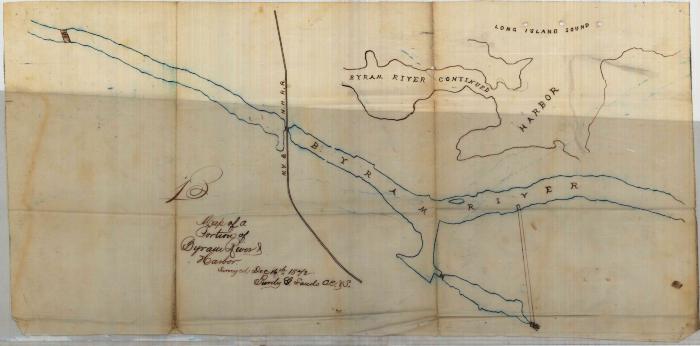 LONG ISLAND SOUND
BYRAM RIVER CONTINUED
HARBOR
N.Y. & N.H. R.R.
BYRAM RIVER
B
Map of a
Portion of
Byram River &
Harbor
Surveyed Dec 16th